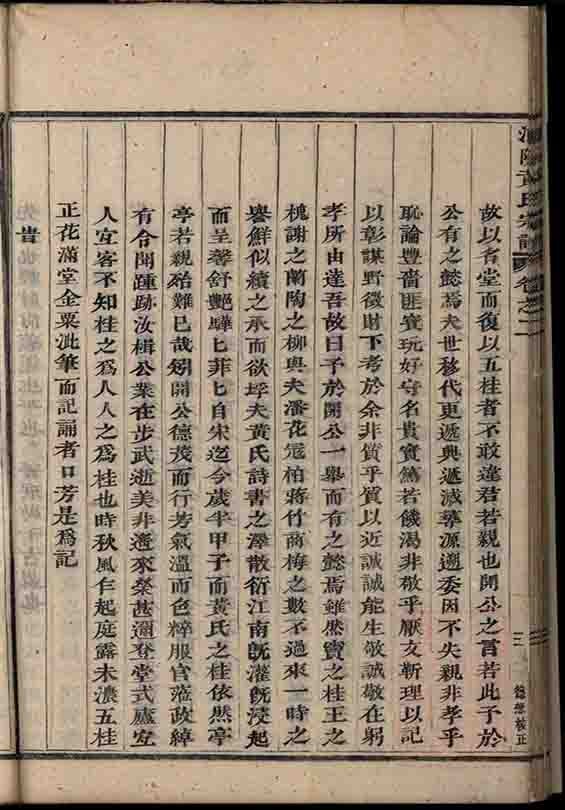 黃氏宗譜 卷之二
三
故以名堂而復以五桂者不敢違君若親也開公之言若此予於
公有之懿焉夫世移代更遞興遞滅葦源遡委因不失親非孝乎
恥論豐嗇匪寶玩好守名貴實篤若饑渴非敬乎厭文靳理以記
以彰謀野徵財下考於余非質乎質以近誠誠能生敬誠敬在躬
孝所由達吾故曰予於開公一舉而有之懿焉雖然竇之桂王之
槐謝之蘭陶之柳與夫潘花寇柏蔣竹商梅之數不過來一時之
譽鮮似續之承而欲埒夫黃氏詩書之澤散衍江南旣灌旣浸起
而呈馨舒艷驊匕菲匕自宋迄今歲半甲子而黃氏之桂依然亭
亭若親殆難已哉矧開公德茂而行芳氣溫而色粹服官蒞政綽
有合開踵跡汝楫公業在步武逝美非遡來榮甚邇登堂式廬宜
人宜客不知桂之爲人人之爲桂也時秋風乍起庭露未濃五桂
正花滿堂金粟泚筆而記誦者口芳是爲記
昔